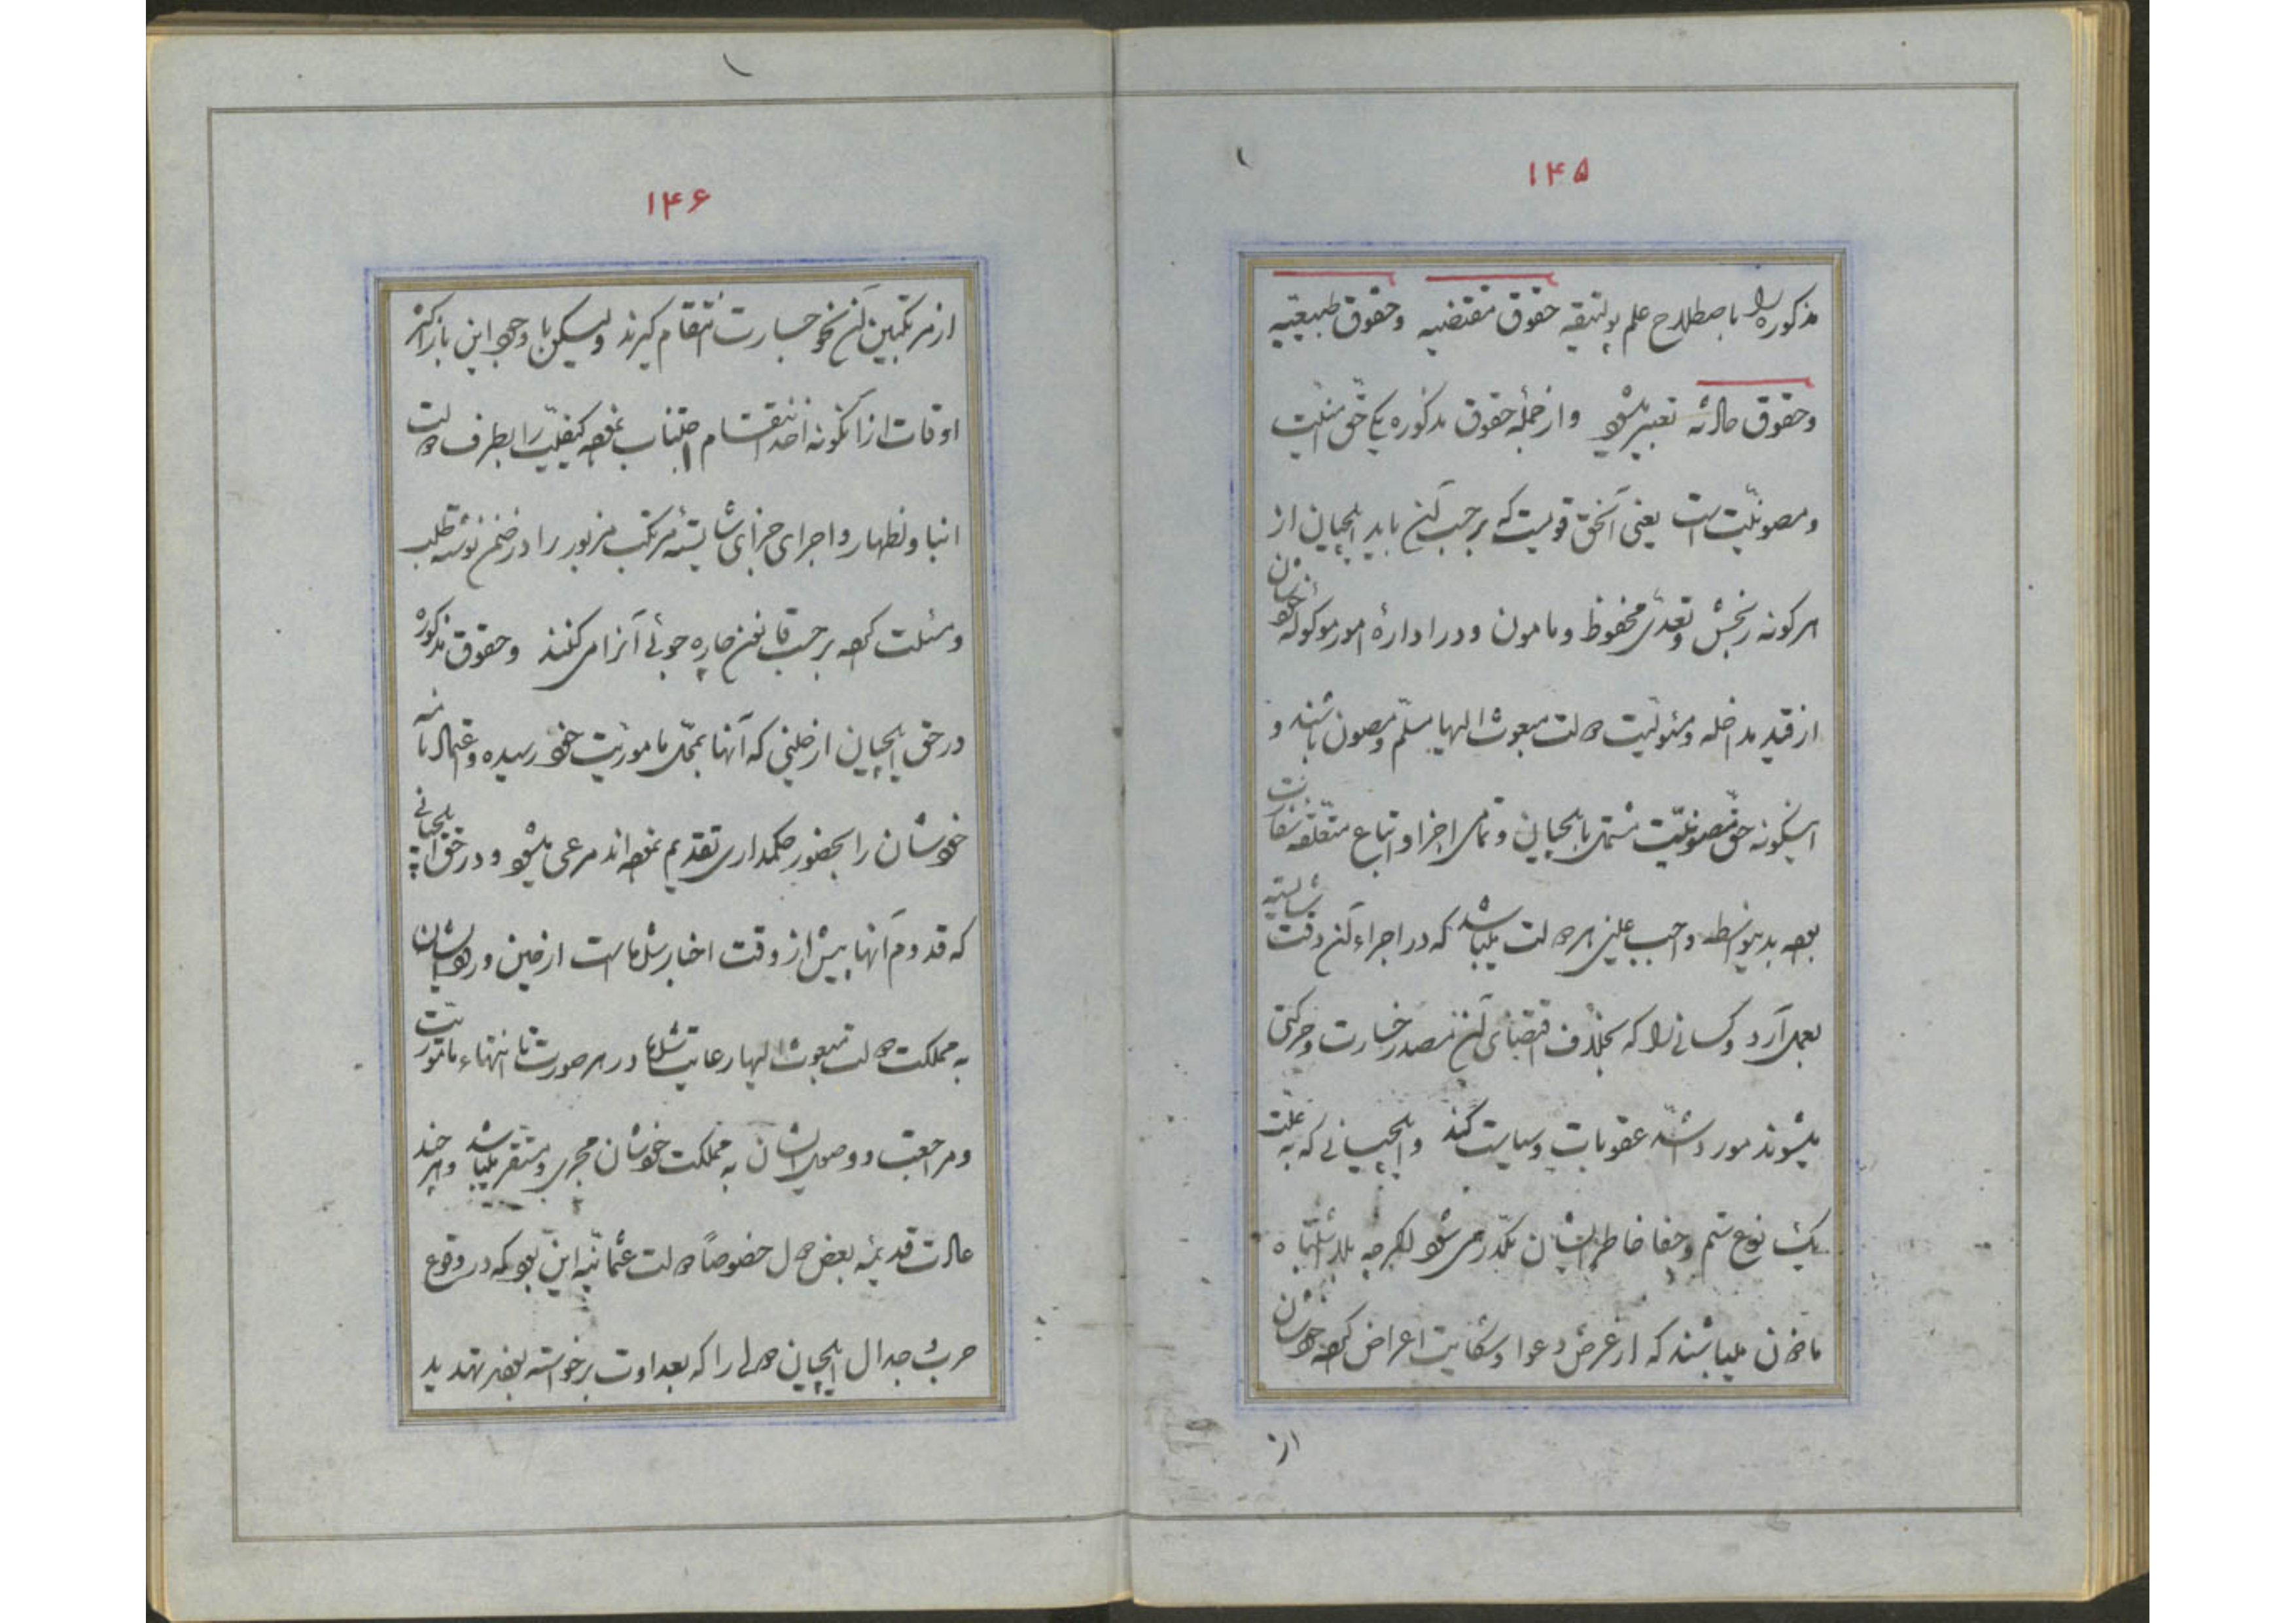 ۱۴۵
مذکوره را باصطلاح علم پولتیقه حقوق مقتضیه وحقوق طبیعیه
وحقوق عادیه تعبیر میشود وازجمله حقوق مذکوره یکی حق امنیت
ومصونیت است یعنی آنحق قویست که برحسب آن باید ایلچیان از
هرگونه رنجش وتعدی محفوظ ومامون ودر اداره امور موکوله خودشان
از قید مداخله ومسئولیت دولت مبعوث الیها مسلم ومصون باشند و
اینگونه حق مصونیت مشتمل بایلچیان وتمامی اجزا واتباع متعلقه سفارت
بوده بدینواسطه واجب علینی هر دولت میباشد که در اجراء آن دقت شایسته
بعمل آرد وکسانی را که بخلاف اقتضای آن مصدر خسارت وحرکتی
میشوند مورد اشد عقوبات وسیاست کند وایلچیانی که به علت
یک نوع ستم وجفا خاطر ایشان مکدر می شود اگرچه بلا اشتباه
ماذون میباشند که از عرض دعوا وشکایت اعراض کرده خودشان
از
۱۴۶
از مرتکبین آن نحو جسارت انتقام گیرند ولیکن با وجود این باز اکثر
اوقات از آنگونه اخذ انتقام اجتناب نموده کیفیت را بطرف دولت
انبا واظهار واجرای جزای شایسته مرتکب مزبور را در ضمن نوشته طلب
ومسئلت کرده برحسب قانون چاره جوئی آنرا می کنند وحقوق مذکوره
در حق ایلچیان از حینی که آنها بمحل ماموریت خود رسیده واعتمادنامه
خودشان را بحضور حکمداری تقدیم نموده اند مرعی میشود ودر حق ایلچیانی
که قدوم آنها پیش از وقت اخبار شده است از حین ورودشان
به مملکت دولت مبعوث الیها رعایت شده در هر صورت تا انتهاء ماموریت
ومراجعت ووصول ایشان به مملکت خودشان مجری ومستقر میباشد وهر چند
عادت قدیمه بعض دول خصوصاً دولت عثمانیه این بود که در وقوع
حرب وجدال ایلچیان دولی را که بعداوت برخواسته بودند تهدید